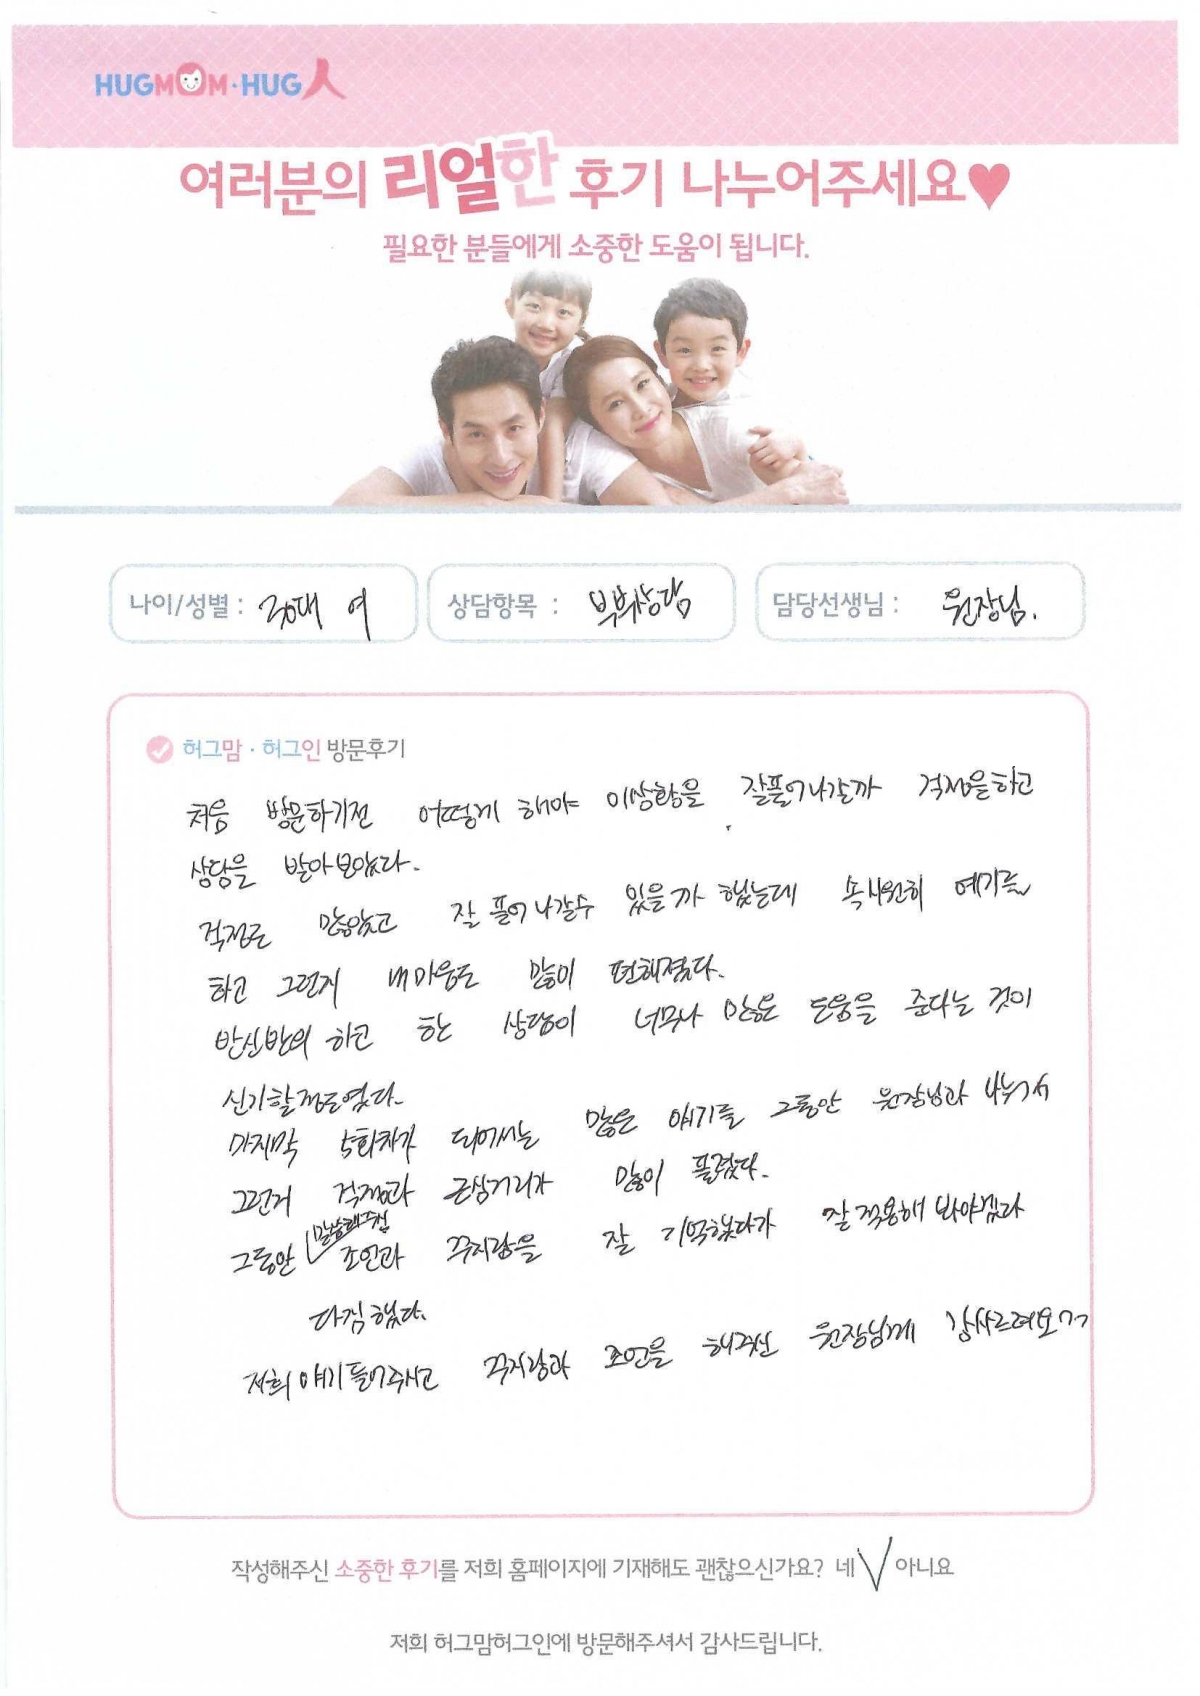 HUGMOM·HUG人
여러분의 리얼한 후기 나누어주세요♥
필요한 분들에게 소중한 도움이 됩니다.
나이/성별 : 30대 여
상담항목 : 부부상담
담당선생님 : 원장님.
허그맘·허그인 방문후기
처음 방문하기전 어떻게 해야 이상황을 잘풀어나갈까 걱정을하고
상담을 받아보았다.
걱정도 많았고 잘 풀어나갈수 있을까 했는데 속시원히 얘기를
하고 그런지 내마음도 많이 편해졌다.
반신반의 하고 한 상담이 너무나 많은 도움을 준다는 것이
신기할정도였다.
마지막 5회차가 되어서는 많은 얘기를 그동안 원장님과 나누어서
그런지 걱정과 근심거리가 많이 풀렸다.
그동안 말씀해주신 조언과 꾸지람을 잘 기억했다가 잘 적용해 봐야겠다
다짐했다.
저희 얘기 들어주시고 꾸지람과 조언을 해주신 원장님께 감사드려요^^
작성해주신 소중한 후기를 저희 홈페이지에 기재해도 괜찮으신가요? 네 √ 아니요
저희 허그맘허그인에 방문해주셔서 감사드립니다.